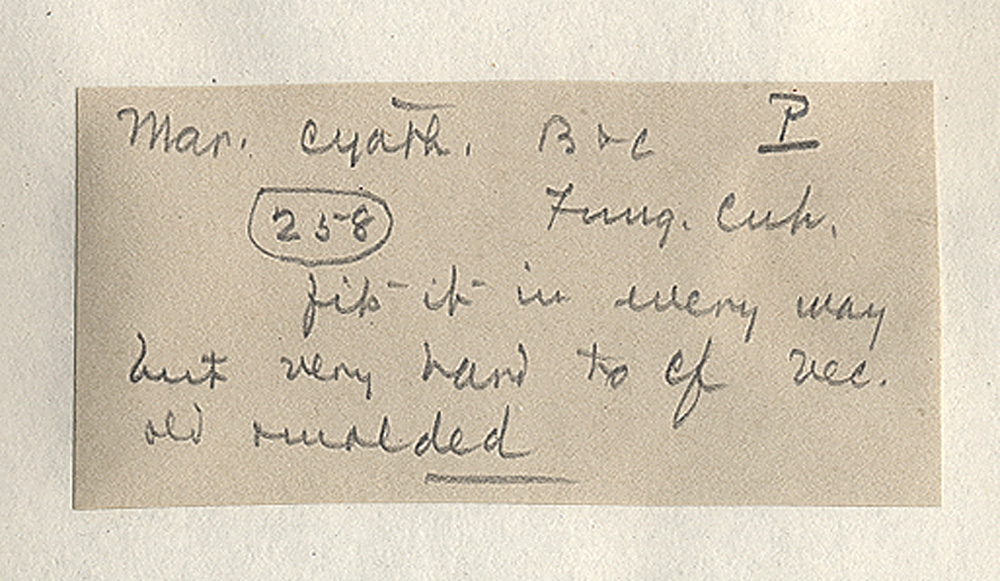 Mar. Cyath. B & C P
258 Fung. Cub.
fits it in every way
but very hard to cf rec.
old & molded